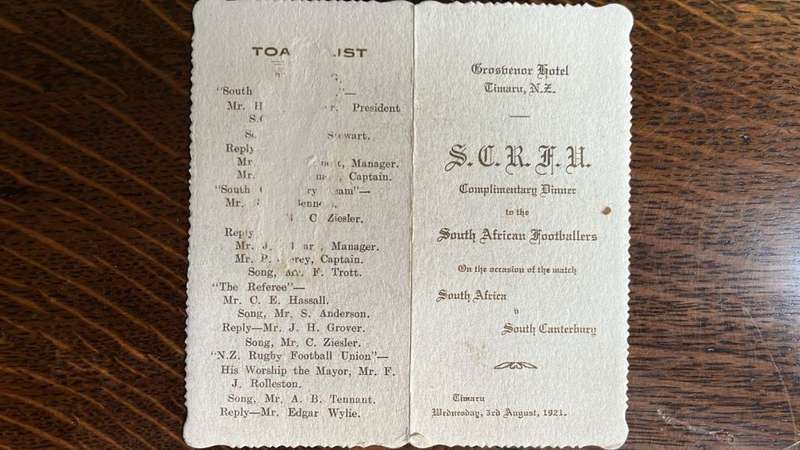 TOA IST
"South "—
Mr. H r. President
S.C
So tewart.
Reply
Mr. nt, Manager.
Mr. ne , Captain.
"South ry eam"—
Mr. enne
C Ziesler.
Reply
Mr. J. ar , Manager.
Mr. P. rey, Captain.
Song, Mr. F. Trott.
"The Referee"—
Mr. C. E. Hassall.
Song, Mr. S. Anderson.
Reply—Mr. J. H. Grover.
Song, Mr. C. Ziesler.
"N.Z. Rugby Football Union"—
His Worship the Mayor, Mr. F.
J. Rolleston.
Song, Mr. A. B. Tennant.
Reply—Mr. Edgar Wylie.
Grosvenor Hotel
Timaru, N.Z.
S.C.R.F.U.
Complimentary Dinner
to the
South African Footballers
On the occasion of the match
South Africa
v
South Canterbury
Timaru
Wednesday, 3rd August, 1921.